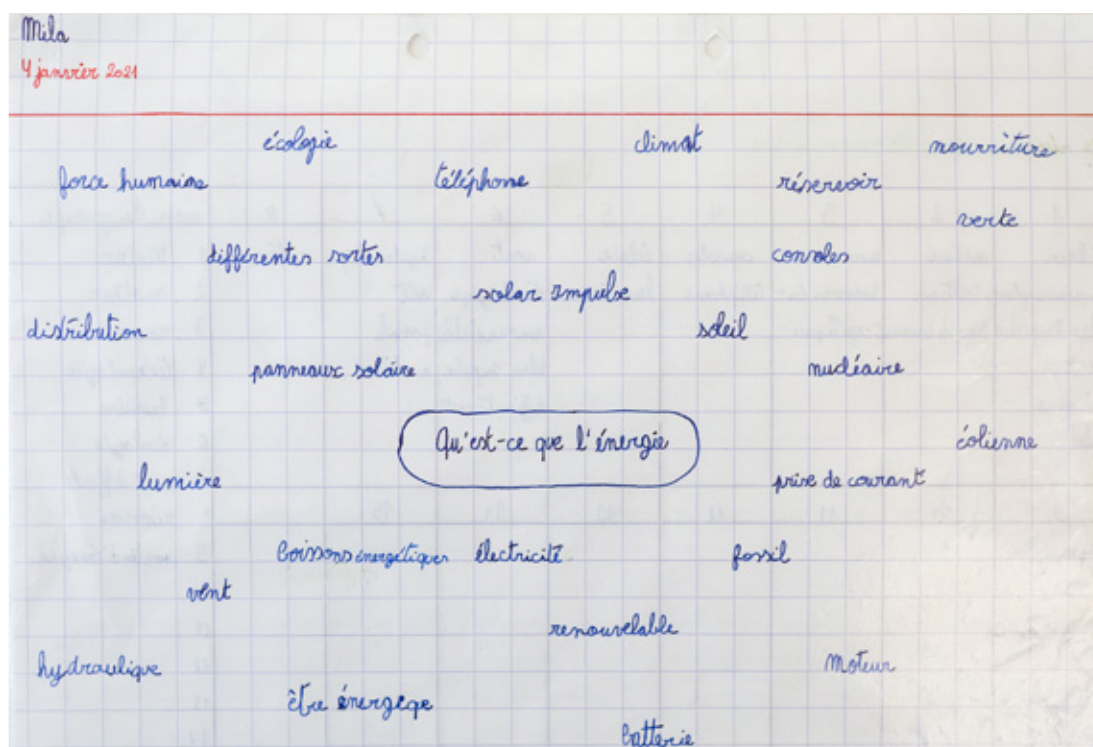 Mila
4 janvier 2021
écologie climat nourriture
force humaine téléphone réservoir
verte
différentes sortes consoles
solar Impulse
distribution soleil
panneaux solaire nucléaire
Qu'est-ce que l'énergie éolienne
lumière prise de courant
boissons énergétiques électricité fossil
vent
renouvelable
hydraulique moteur
être énergeqe
batterie